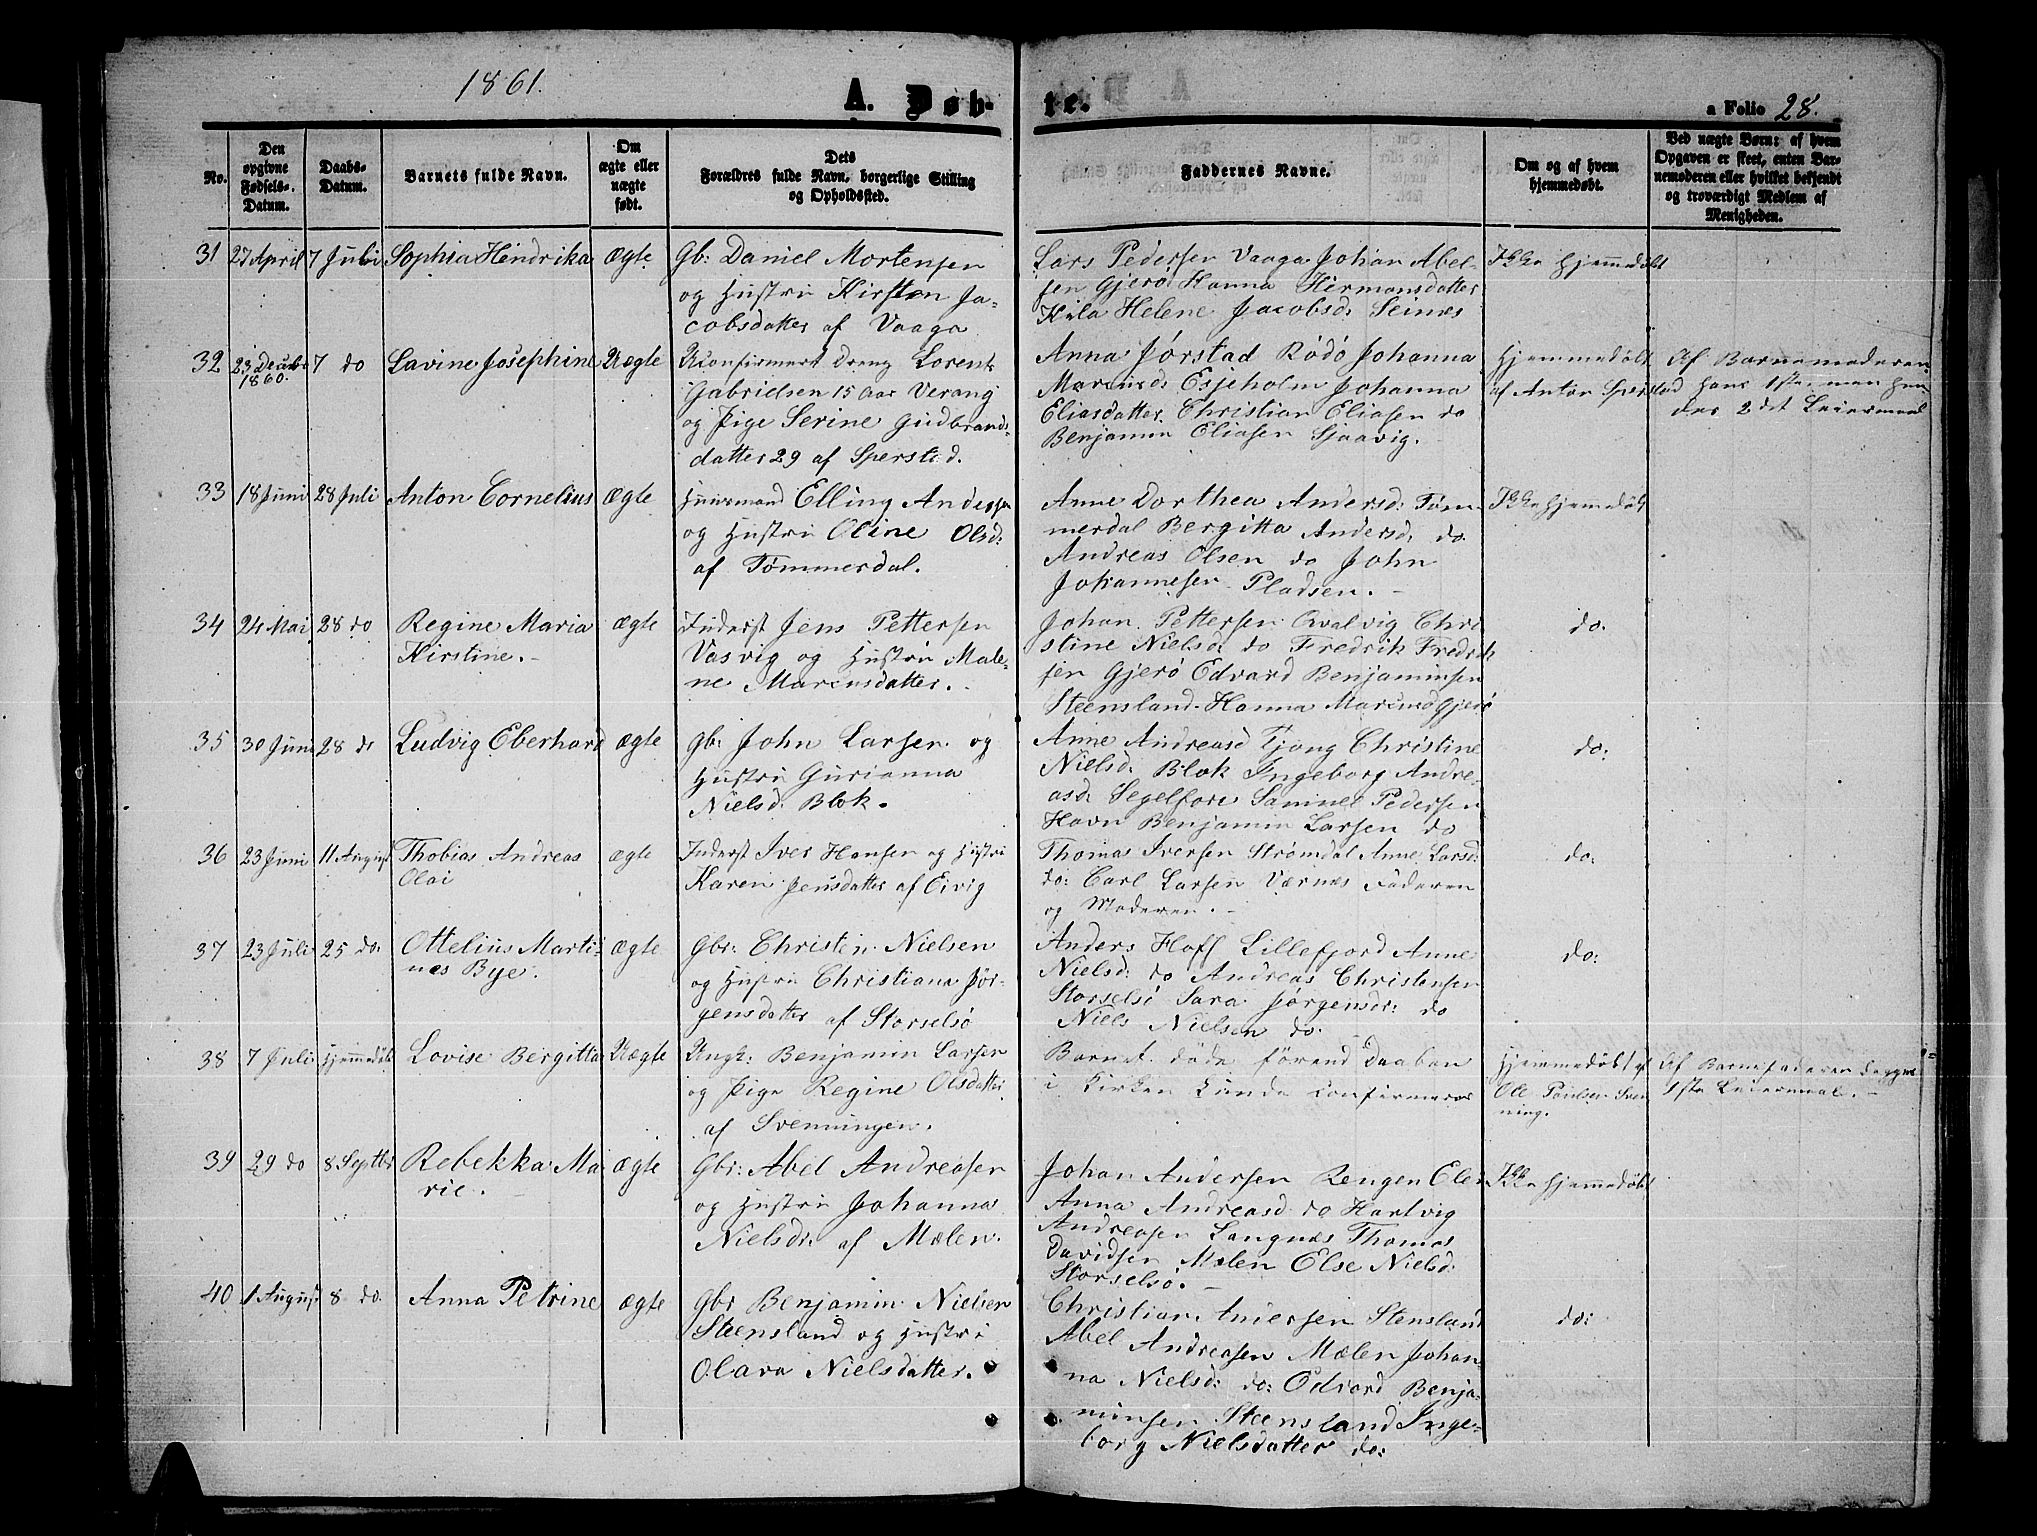 1861.
A. Døb-
te.
a Folio 28.
No.
Den opgivne Fødsels-Datum.
Daabs-Datum.
Barnets fulde Navn.
Om ægte eller uægte født.
Dets Forældres fulde Navn, borgerlige Stilling og Opholdssted.
Faddernes Navne.
Om og af hvem hjemmedøbt.
Ved uægte Børn: af hvem Opgaven er skeet, enten Barnemoderen eller hvilket bekjendt og troværdigt Medlem af Menigheden.
31 27 April 7 Juli Sophia Hendrika ægte
Gb: Daniel Mortensen
og Hustru Kirsten Ja-
cobsdatter af Vaaga
Lars Pedersen Vaaga Johan Abel-
sen Gjerø Hanna Hermansdatter
Kila Helene Jacobsd: Seines
Ikke hjemmedøbt
32 23 Decembr 1860. 7 do Lavine Josephine Uægte
Ukonfirmert Dreng Lorents
Gabrielsen 15 Aar Verang
og Pige Serine Gudbrands-
datter 29 af Sperstad.
Anna Jørstad Rødø Johanna
Marcusd: Esjeholm Johanna
Eliasdatter Christian Eliasen do
Benjamin Eliasen Sjaavig.
Hjemmedøbt
af Anton Sperstad
Af Barnemoderen
hans 1ste men hen-
des 2det Leiermaal
33 18 Juni 28 Juli Anton Cornelius ægte
Huusmand Elling Andersen
og Hustru Oline Olsd:
af Tømmerdal.
Anne Dorthea Andersd: Tøm-
merdal Bergitta Andersd: do
Andreas Olsen do John
Johannesen Pladsen. -
Ikke hjemmedøbt
34 24 Mai 28 do Regine Maria
Kirstine. -
ægte
Inderst Jens Pettersen
Vasvig og Hustru Male-
ne Marcusdatter. -
Johan Pettersen Qvalvig Chri-
stine Nielsd: do Fredrik Fredrik-
sen Gjerø Edvard Benjaminsen
Steensland Hanna Marcusd Gjerø
do.
35 30 Juni 28 do Ludvig Eberhard ægte
gb: John Larsen og
Hustru Gurianna
Nielsd: Blok.
Anne Andreasd Tjong Christine
Nielsd: Blok Ingeborg Andre-
asd: Segelfore Samuel Pedersen
Havn Benjamin Larsen do
do:
36 23 Juni 11 August Thobias Andreas
Olai
ægte
Inderst Iver Hansen og Hustru
Karen Jensdatter af Eivig
Thomas Iversen Strømdal Anne Larsd:
do: Carl Larsen Værnes Faderen
og Moderen. -
do:
37 23 Juli 25 do. Ottelius Marti-
nes Bye.
ægte
Gbr: Christen Nielsen
og Hustru Christiana Jør-
gensdatter af Storselsø
Anders Hoff Lillefjord Anne
Nielsd: do Andreas Christensen
Storselsø Sara Jørgensdr: do
Niels Nielsen do.
do:
38 7 Juli Hjemmedøbt Lovise Bergitta Uægte
Ungk: Benjamin Larsen
og Pige Regine Olsdatter
af Svenningen.
Barnet døde førend Daaben
i Kirken kunde confirmeres
Hjemmedøbt af
Ole Paulsen Sven-
ning.
Af Barnefaderen begges
1ste Leiermaal. -
39 29 do 8 Septbr Rebekka Ma-
rie. -
ægte
Gbr: Abel Andreasen
og Hustru Johanna
Nielsdr: af Mælen.
Johan Andersen Rengen Elen
Anna Andreasd do Hartvig
Andreasen Langnæs Thomas
Davidsen Mælen Else Nielsd:
Storselsø. -
Ikke hjemmedøbt
40 1 August 8 do. Anna Petrine ægte
Gbr Benjamin Nielsen
Steensland og Hustru
Olava Nielsdatter.
Christian Andersen Stensland
Abel Andreasen Mælen Johan-
na Nielsd: do: Edvard Benja-
minsen Steensland Inge-
borg Nielsdatter do:
do: